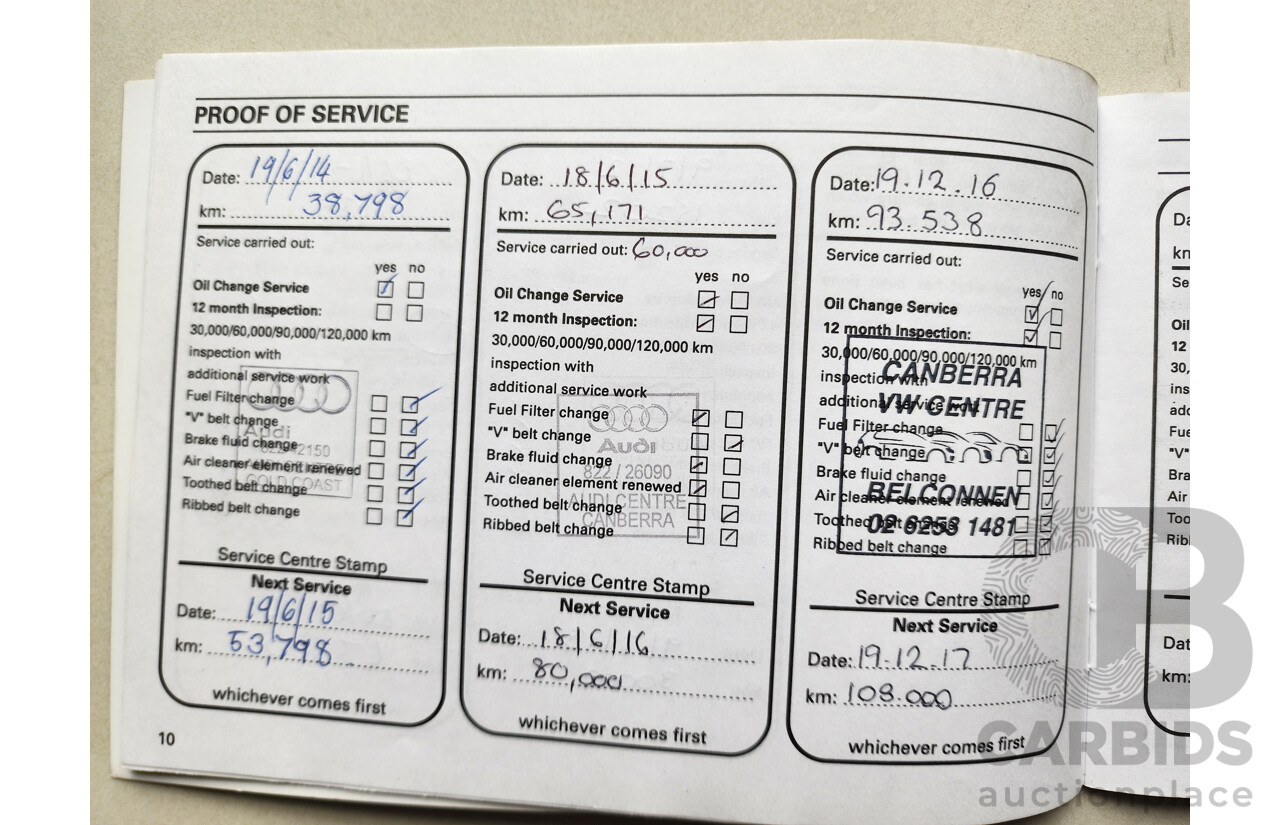 PROOF OF SERVICE
Date: 19/6/14
km: 38,798
Service carried out:
yes no
Oil Change Service
12 month Inspection:
30,000/60,000/90,000/120,000 km
inspection with
additional service work
Fuel Filter change
"V" belt change
Brake fluid change
Air cleaner element renewed
Toothed belt change
Ribbed belt change
Audi
GOLD COAST
Service Centre Stamp
Next Service
Date: 19/6/15
km: 53,798
whichever comes first
10
Date: 18/6/15
km: 65,171
Service carried out: 60,000
yes no
Oil Change Service
12 month Inspection:
30,000/60,000/90,000/120,000 km
inspection with
additional service work
Fuel Filter change
"V" belt change
Brake fluid change
Air cleaner element renewed
Toothed belt change
Ribbed belt change
Audi
822 / 26090
AUDI CENTRE
CANBERRA
Service Centre Stamp
Next Service
Date: 18/6/16
km: 80,000
whichever comes first
Date: 19.12.16
km: 93.538
Service carried out:
yes no
Oil Change Service
12 month Inspection:
30,000/60,000/90,000/120,000 km
inspection with
additional service work
Fuel Filter change
"V" belt change
Brake fluid change
Air cleaner element renewed
Toothed belt change
Ribbed belt change
CANBERRA
VW CENTRE
BELCONNEN
02 6253 1481
Service Centre Stamp
Next Service
Date: 19.12.17
km: 108.000
whichever comes first
Da
km
Se
Oil
12
30,
ins
add
Fue
"V"
Bra
Air
Too
Rib
Dat
km:
CARBIDS
auctionplace